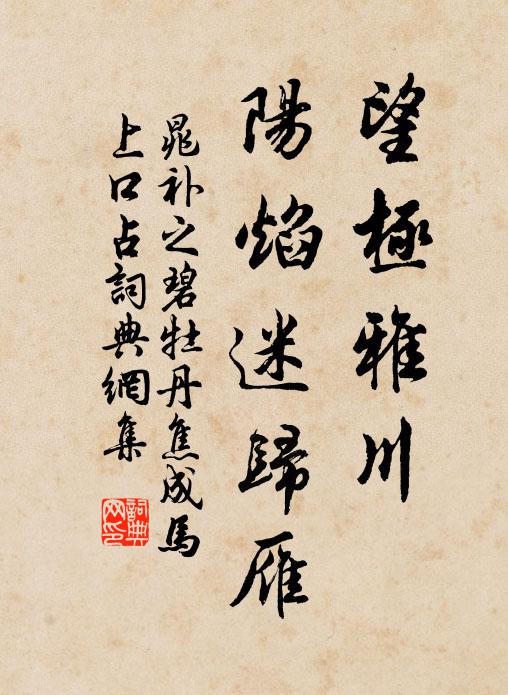 望極雅川
陽焰迷歸雁
晁补之碧牡丹焦成馬
上口占詞典網集
詞典網印